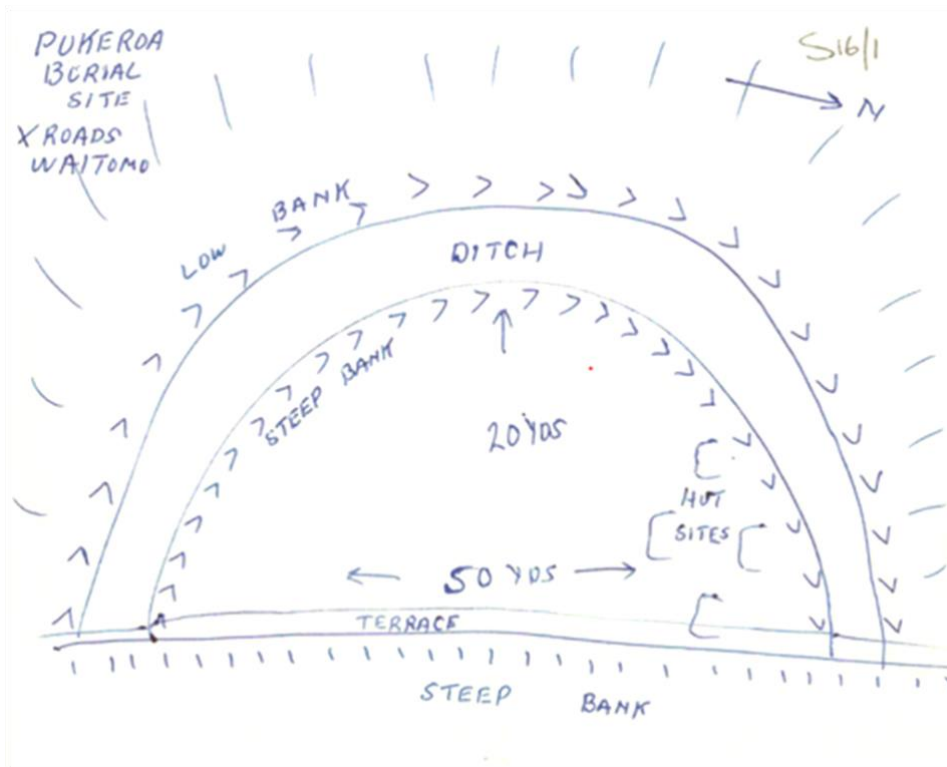 PUKEROA
BURIAL
SITE
X ROADS
WAITOMO
S16/1
N
LOW BANK
DITCH
STEEP BANK
20 YDS
HUT
SITES
50 YDS
TERRACE
STEEP BANK